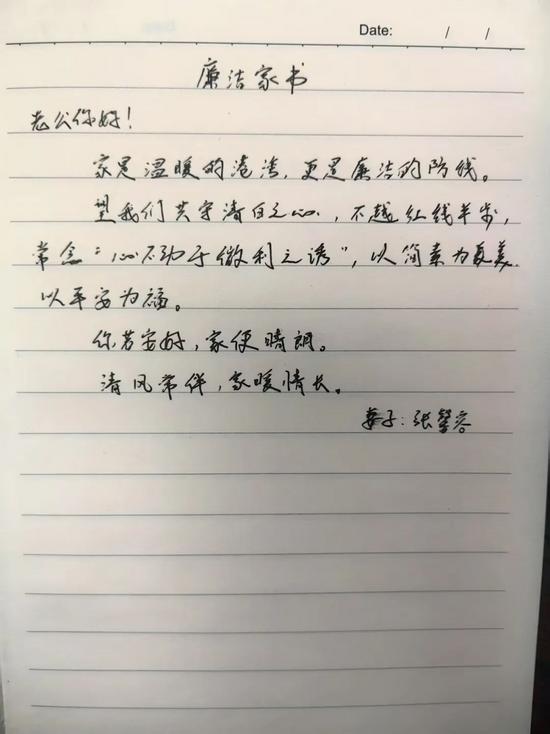 Date: / /
廉洁家书
老公你好！
家是温暖的港湾，更是廉洁的防线。
望我们共守清白之心，不越红线半步，
常念“心不动于微利之诱”，以简素为美
以平安为福。
你若安好，家便晴朗。
清风常伴，家暖情长。
妻子：张馨容